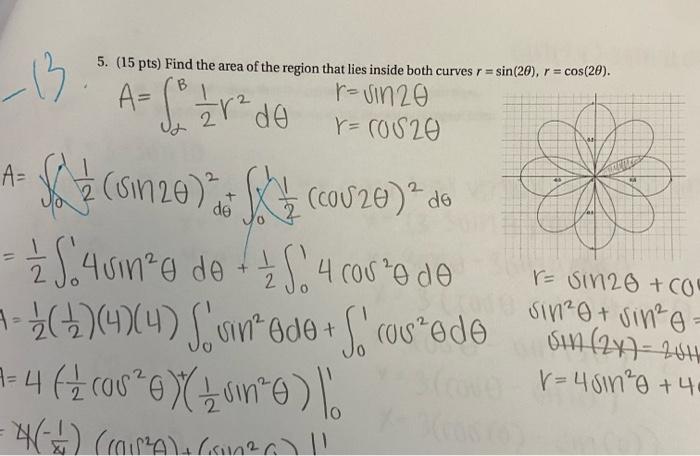 -13
5. (15 pts) Find the area of the region that lies inside both curves r = sin(2θ), r = cos(2θ).
A = ∫_α^B 1/2 r² dθ
r = sin2θ
r = cos2θ
A = ∫_0^1 1/2 (sin2θ)² dθ + ∫_0^1 1/2 (cos2θ)² dθ
= 1/2 ∫_0^1 4sin²θ dθ + 1/2 ∫_0^1 4cos²θ dθ
r = sin2θ + co
A = 1/2(1/2)(4)(4) ∫_0^1 sin²θdθ + ∫_0^1 cos²θdθ
sin²θ + sin²θ =
sin(2x) = 2sin
A = 4(-1/2 cos²θ)+(1/2 sin²θ)|_0^1
r = 4sin²θ + 4